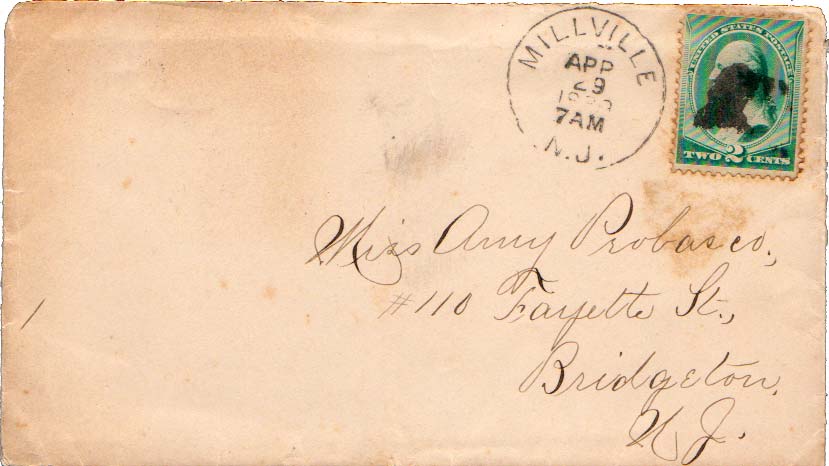 MILLVILLE
APR
29
7AM
N.J.
UNITED STATES POSTAGE
TWO 2 CENTS
Miss Amy Probasco,
#110 Fayette St.,
Bridgeton,
N.J.